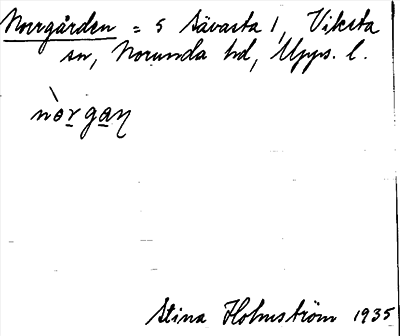 Norrgården = 5 Sävasta 1, Viksta
sn, Norunda hd, Upps. l.
nòrgaꞑ
Stina Holmström 1935